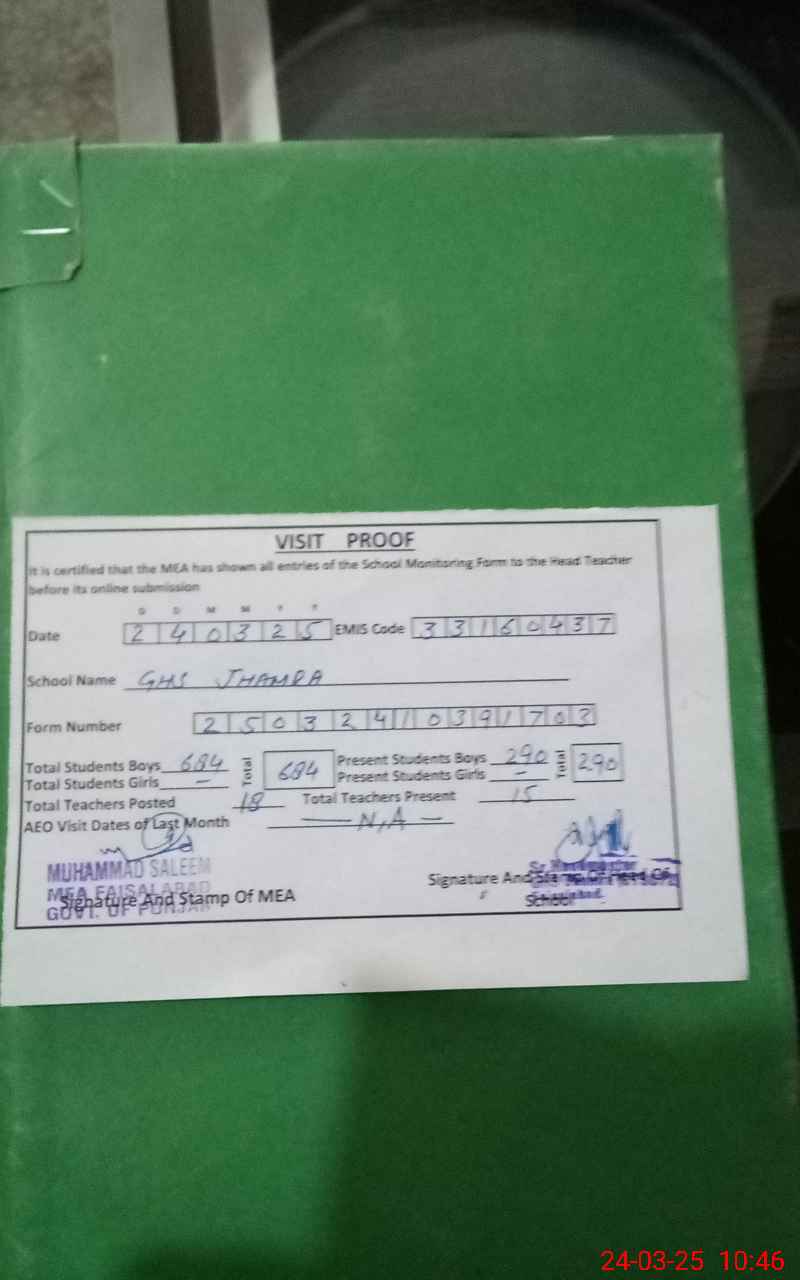 VISIT PROOF
It is certified that the MEA has shown all entries of the School Monitoring Form to the Head Teacher
before its online submission
D D M M Y Y
Date 240325 EMIS Code 33160437
School Name GHS JHAMRA
Form Number 25032410391703
Total Students Boys 684 Total 684 Present Students Boys 290 Total 290
Total Students Girls — Present Students Girls —
Total Teachers Posted 18 Total Teachers Present 15
AEO Visit Dates of Last Month — N,A —
MUHAMMAD SALEEM
MEA FAISALABAD
GOVT. OF PUNJAB
Signature And Stamp Of MEA
Sr. Headmaster
Signature And Stamp Of Head Of
School
24-03-25 10:46